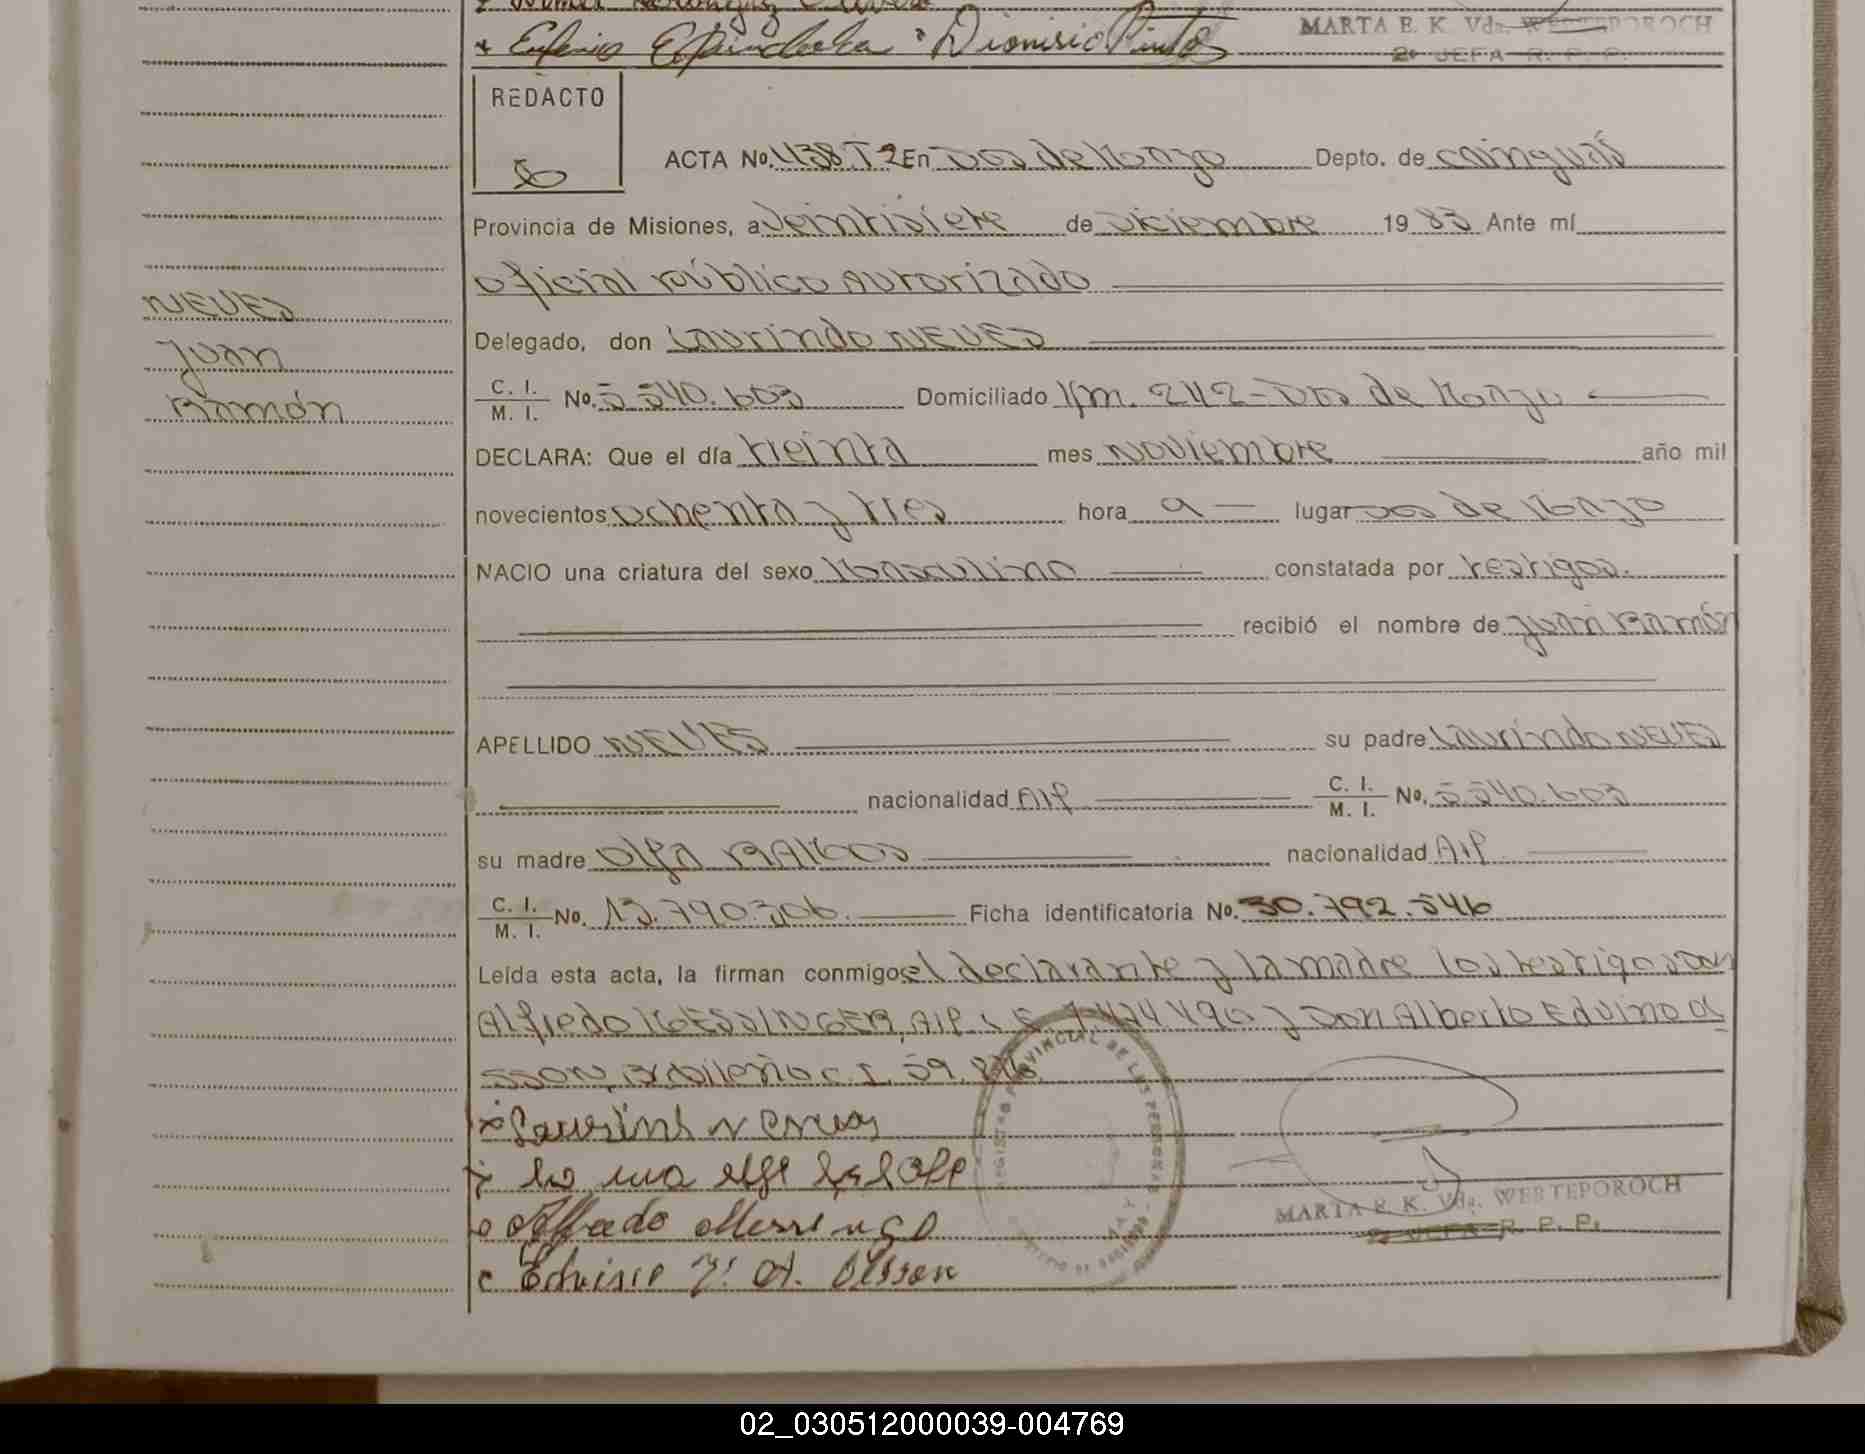 Dionisio Pinto
MARTA E. K. Vda. WERTEPOROCH
2º JEFA R. P. P.
REDACTO
ACTA No. 438.T2 En Dos de Mayo Depto. de Cainguás
Provincia de Misiones, a Veintisiete de Diciembre 19 83 Ante mí
Oficial Público Autorizado
NEVES
Juan
Ramón
Delegado, don Laurindo NEVES
C. I. / M. I. No. 5.540.603 Domiciliado Km. 242-Dos de Mayo
DECLARA: Que el día treinta mes Noviembre año mil
novecientos ochenta y tres hora 9 lugar Dos de Mayo
NACIO una criatura del sexo Masculino constatada por testigos.
recibió el nombre de Juan Ramón
APELLIDO NEVES su padre Laurindo NEVES
nacionalidad C. I. / M. I. No. 5.540.603
su madre Olga RAMOS nacionalidad
C. I. / M. I. No. 13.790.306. Ficha identificatoria No. 30.792.546
Leída esta acta, la firman conmigo el declarante y la madre los testigos Don
Alfredo MESSINGER, 7.474.490 y Don Alberto Edvino O
SSON, Brasileño C.I. 59.876.
Alfredo
Olsson
MARTA E. K. Vda. WERTEPOROCH
2º JEFA R. P. P.
02_030512000039-004769